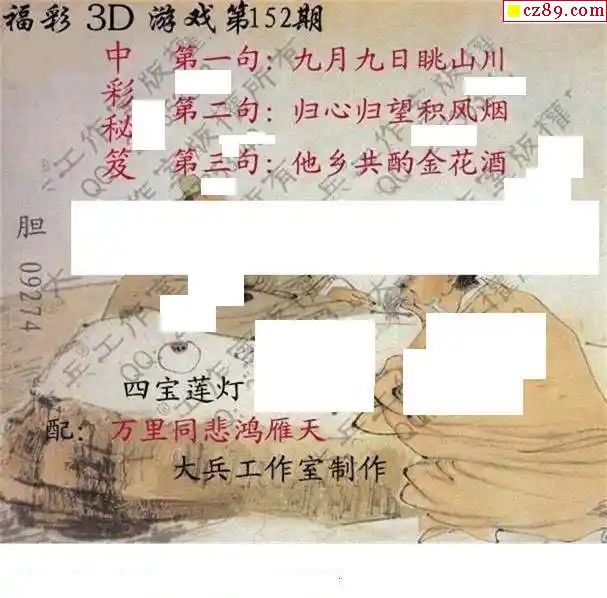 cz89.com
福彩 3D 游戏第152期
中彩秘笈
第一句：九月九日眺山川
第二句：归心归望积风烟
第三句：他乡共酌金花酒
胆 09274
四宝莲灯
配：万里同悲鸿雁天
大兵工作室制作